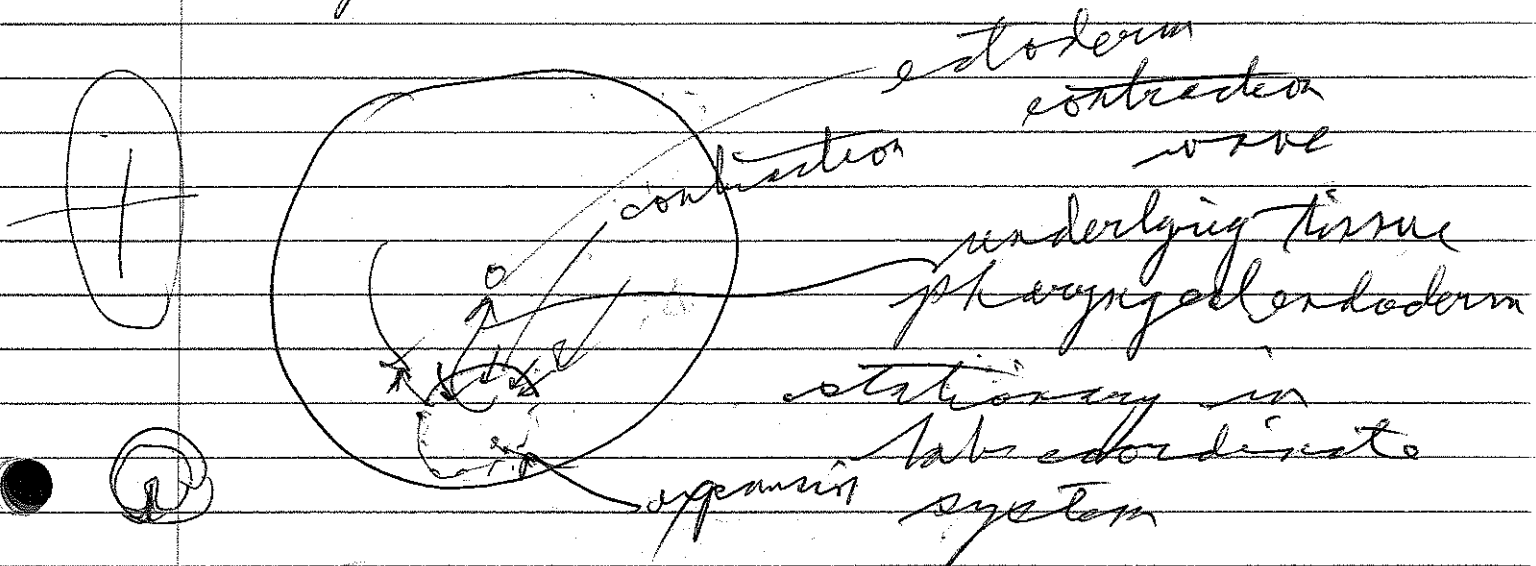 ectoderm
contraction
wave
contraction
underlying tissue
pharyngeal endoderm
stationary in
lab coordinate
system
expansion